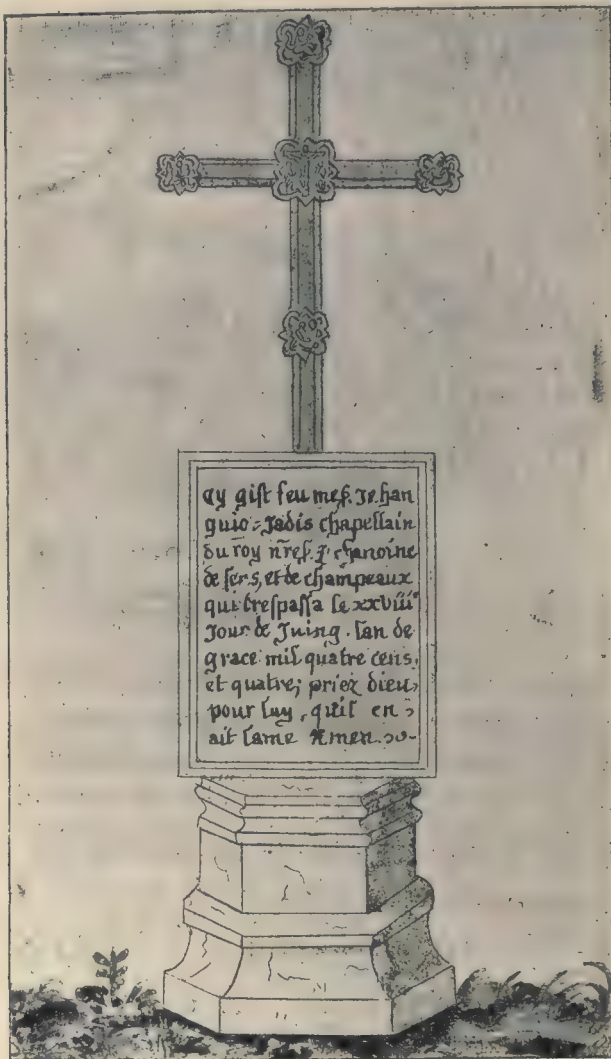 Cy gist feu mes. Jehan
guio = Jadis chapellain
du roy nres. ⁊ chanoine
de sens, et de champeaux
qui trespassa le xxviii⁰
Jour de Juing. lan de
grace mil quatre cens,
et quatre; priez dieu,
pour luy, quil en
ait lame Amen.